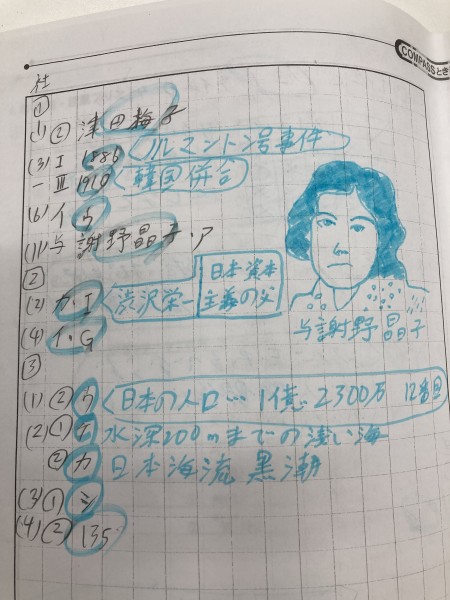 COMPASS とき
社
①
(1) ② 津田梅子
(3) I 1886 ノルマントン号事件
III 1910 韓国併合
(6) イ ウ
(11) 与謝野晶子・ア
②
(2) カ・I 渋沢栄一 日本資本主義の父
(4) イ・G
与謝野晶子
③
(1) ② ウ 日本の人口…1億2300万 12番目
(2) ① オ 水深200mまでの浅い海
② カ 日本海流 黒潮
(3) ① シ
(4) ② 135